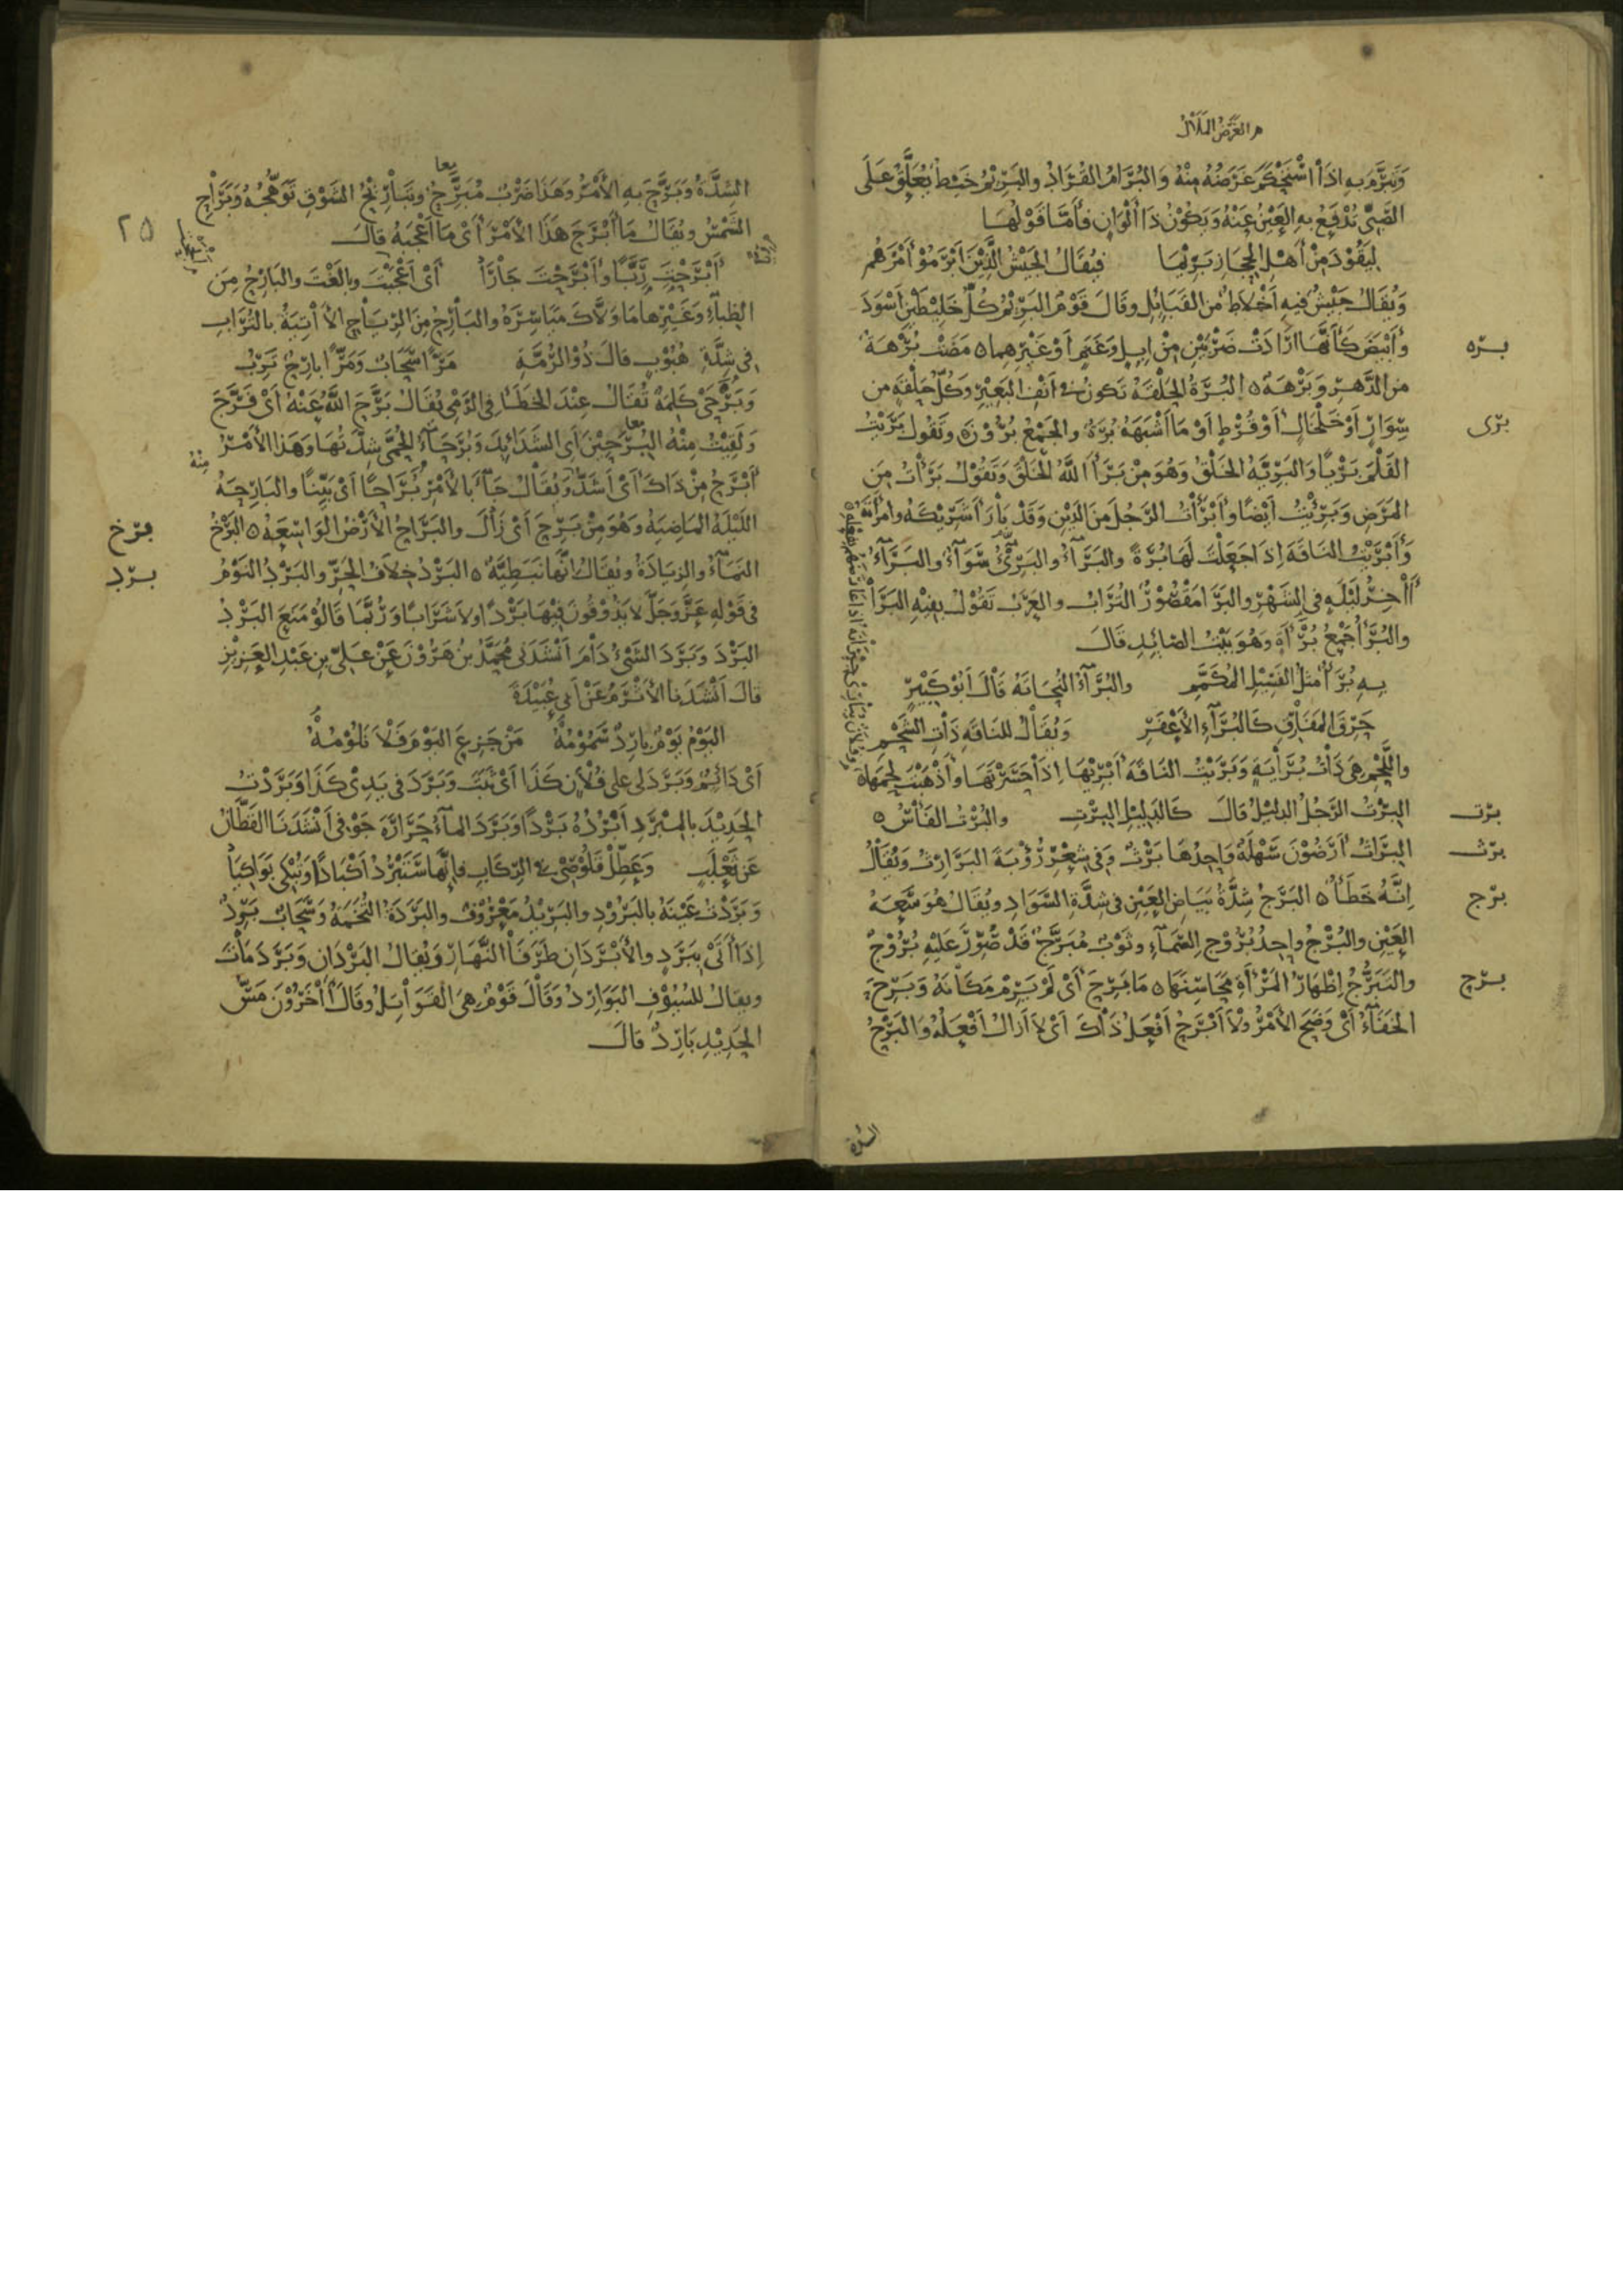 هو الغرض الملال
وَتَبَرَّمَ بِهِ اِذَا اسْتَحْكَمَ غَرَضُهُ مِنْهُ وَالبُرَامُ القُرَادُ والبَرِيْمُ خَيْطٌ يُعَلَّقُ عَلَى
الصَّبِىِّ يُدْفَعُ بِهِ العَيْنُ عَنْهُ وَيَكُوْنُ ذَا أَلْوَانٍ فَأَمَّا قَوْلُهَا
لِيَقُوْدَ مِنْ أَهْلِ الحِجَازِ بَرِيْمَا فيُقَالُ الجَيْشُ الَّذِيْنَ اَبْرَمُوْا أَمْرَهُم
وَيُقَالُ جَيْشٌ فِيهِ أَخْلَاطٌ من القَبَائِلِ وقَالَ قَوْمٌ البَرِيْمُ كُلُّ خَلِيْطَيْنِ اَسْوَدَ
وأَبْيَضَ كَأَنَّهَا اَرَادَتْ ضَرْبَيْنِ مِنْ اِبِلٍ وَغَنَمٍ اَوْ غَيْرِهِما ۵ مَضَتْ بُرْهَةٌ
بره
مِنَ الدَّهْرِ وَبَرْهَةٌ ۵ البُرَةُ الحَلْقَةُ تَكونُ في أَنْفِ البَعِيْرِ وَكُلُّ حَلْقَةٍ من
سِوَارٍ أَوْ خَلْخَالٍ أَوْ قُرْطٍ أَوْ مَا أَشْبَهَهُ بُرَةٌ والجَمْعُ بُرُوْنَ وَتَقُولُ بَرَيْتُ
برى
القَلَمَ بَرْيًا وَالبَرِيَّةُ الخَلْقُ وَهُوَ مِنْ بَرَأَ اللّٰهُ الخَلْقَ وَتَقُوْلُ بَرَأْتُ مِنَ
المَرَضِ وَبَرِئْتُ أَيْضًا وأَبْرَأْتُ الرَّجُلَ مِنَ الدَيْنِ وَقَدْ بَارَأَ شَرِيْكَهُ وامْرَأَتَهُ
وَأَبْرَيْتُ النَاقَةَ اِذَا جَعَلْتَ لَهَا بُرَةً والبَرَآءُ والبَرِىْءُ سَوَآءٌ والبَرَآءُ
اٰخِرُ لَيْلَةٍ فى الشَهْرِ والبَرَا مَقْصُوْرٌ التُرَابُ والعَرَبُ تَقُوْلُ بِفِيْهِ البَرَا
والبُرَأُ جَمْعُ بُرْأَةٍ وَهُوَ بَيْتُ الصَائِدِ قَالَ
بِهِ بُرَأٌ مِثْلُ الفَسِيْلِ المُكَمَّمِ والبُرَآءُ النُحَاتَةُ قَالَ اَبُوْ كَبِيْرٍ
حَرِقَ المَفَارِقِ كَالبُرَآءِ الأَعْفَرِ وَيُقَالُ للنَاقَةِ ذَاتِ الشَحْمِ
واللَّحْمِ هى ذَاتُ بُرَايَةٍ وَبَرَيْتُ النَاقَةَ أَبْرِيْهَا اِذَا حَسَرْتَهَا وأَذْهَبْتَ لَحْمَهَا ۵
البِرْتُ الرَجُلُ الدليْلُ قالَ كَالدَلِيْلِ البِرْتِ والبُرْتُ الفَأْسُ ۵
برت
البِرَاثُ أَرَضُوْنَ سَهْلَةٌ وَاحِدُهَا بَرْثٌ وَفى شِعْرِ رُؤْبَةَ البَرَارِثُ وَيُقَالُ
برث
اِنَّهُ خَطَأٌ ۵ البَرَجُ شِدَّةُ بَيَاضِ العَيْنِ فى شِدَّةِ السَّوَادِ ويُقَالُ هُوَ سَعَةُ
برج
العَيْنِ والبُرْجُ واحِدُ بُرُوْجِ السَّمَآءِ وثَوْبٌ مُبَرَّجٌ قَدْ صُوِّرَ عَلَيْهِ بُرُوْجٌ
والتَبَرُّجُ اِظْهَارُ المَرْأَةِ مَحَاسِنَهَا ۵ مَا بَرِحَ أَىْ لَمْ يَرِمْ مَكَانَهُ وَبَرِحَ
برح
الخَفَآءُ أَىْ وَضَحَ الأَمْرُ ولَا أَبْرَحُ أَفْعَلُ ذَاكَ أَىْ لَا أَزَالُ أَفْعَلُهُ وَالبَرْحُ
الشدة
٢٥
معا
الشِدَّةُ وَبَرَّحَ بِهِ الأَمْرُ وَهَذَا ضَرْبٌ مُبَرِّحٌ وتَبَارِيْحُ الشَوْقِ تَوَهُّجُهُ وَبَرَاحِ
الشَمْسُ ويُقَالُ مَا أَبْرَحَ هَذَا الأَمْرَ أَىْ مَا أَعْجَبَهُ قَالَ
أَبْرَحْتَ رَبًّا وأَبْرَحْتَ جَارَا أَىْ أَعْجَبْتَ وبالَغْتَ والبَارِحُ مِنَ
الظِبَآءِ وَغَيْرِهَا مَا وَلَّاكَ مَيَاسِرَهُ والبَارِحُ مِنَ الرِيَاحِ الآتِيَةُ بالتُرَابِ
فى شِدَّةِ هُبُوْبٍ قالَ ذُوْ الرُمَّةِ مَرًّا سَحَابٌ وَمَرًّا بارِحٌ تَرِبُ
وَبَرْحَى كَلِمَةٌ تُقَالُ عِنْدَ الخَطَأِ فى الرَمْىِ يُقَالُ بَرَّحَ اللّٰهُ عَنْهُ أَىْ فَرَّجَ
وَلَقِيْتُ مِنْهُ البُرَحِيْنَ أَىِ الشَدَائِدَ وَبُرَحَآءُ الحُمَّى شِدَّتُهَا وَهَذَا الأَمْرُ
معا
أَبْرَحُ مِنْ ذَاكَ أَىْ أَشَدُّ وَيُقَالُ جَآءَ بالأَمْرِ بَرَاحًا أَىْ بَيِّنًا والبَارِحَةُ
منه
اللَيْلَةُ المَاضِيَةُ وَهُوَ مِنْ بَرِحَ أَىْ زَالَ والبَرَاحُ الأَرْضُ الوَاسِعَةُ ۵ البَرْخُ
برخ
النَمَآءُ والزِيَادَةُ ويُقَالُ اِنَّهَا نَبَطِيَّةٌ ۵ البَرْدُ خِلَافُ الحَرِّ والبَرْدُ النَوْمُ
برد
فى قَوْلِهِ عَزَّ وَجَلَّ لَا يَذُوْقُوْنَ فِيْهَا بَرْدًا وَلَا شَرَابًا وَرُبَّمَا قَالُوْا مَنَعَ البَرْدُ
البَرْدَ وَبَرَدَ الشَىْءُ دَامَ أَنْشَدَنى مُحَمَّدُ بنُ هَرُوْنَ عَنْ عَلِىِّ بنِ عَبْدِ العَزِيْزِ
قَالَ أَنْشَدَنَا الأَثْرَمُ عَنْ أَبِى عُبَيْدَةَ
اليَوْمُ يَوْمٌ بارِدٌ سَمُوْمُهُ مَنْ جَزِعَ اليَوْمَ فَلَا تَلُوْمُهُ
أَىْ دَائِمٌ وَبَرَدَ لى على فُلَانٍ كَذَا أَىْ ثَبَتَ وَبَرَدَ فى يَدِىْ كَذَا وَبَرَدْتُ
الحَدِيْدَ بالمِبْرَدِ أَبْرُدُهُ بَرْدًا وَبَرَدَ المَآءُ حَرَارَةَ جَوْفى أَنْشَدَنَا القَطَّانُ
عَن ثَعْلَبٍ وَعَطِّلْ قَلُوْصِى في الرِكَابِ فإِنَّهَا سَتَبْرُدُ أَكْبَادًا وَتُبْكِى بَوَاكِيَا
وَبَرَدْتُ عَيْنَهُ بالبَرُوْدِ والبَرِيْدُ مَعْرُوْفٌ والبَرَدَةُ التُخَمَةُ وَسَحَابٌ بَرِدٌ
اِذَا أَتَى بِبَرَدٍ والأَبْرَدَانِ طَرَفَا النَّهَارِ وَيُقَالُ البَرْدَانِ وَبَرَدَ مَاتَ
ويقَالُ للسُيُوْفِ البَوَارِدُ وَقَالَ قَوْمٌ هِىَ القَوَاتِلُ وقَالَ اٰخَرُوْنَ مَسُّ
الحَدِيْدِ بَارِدٌ قالَ